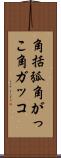 角括弧角がっこ角ガッコ